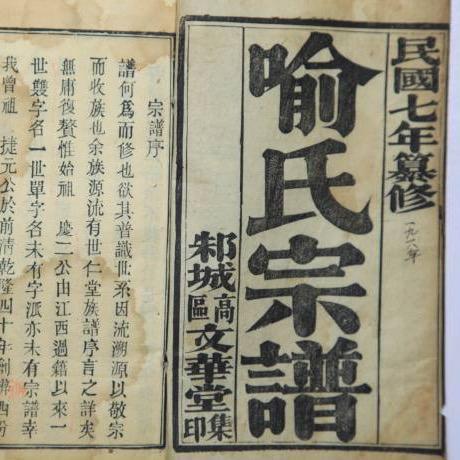 民國七年纂修
一九一八年
喻氏宗譜
邾城高區文華堂集印
宗譜序
譜何為而修也欲其普識世系因流溯源以敬宗
而收族也余族源流有世仁堂族譜序言之詳矣
無庸復贅惟始祖 慶二公由江西過籍以來一
世雙字名一世單字名未有字派亦未有宗譜幸
我曾祖 捷元公於前清乾隆四十年創